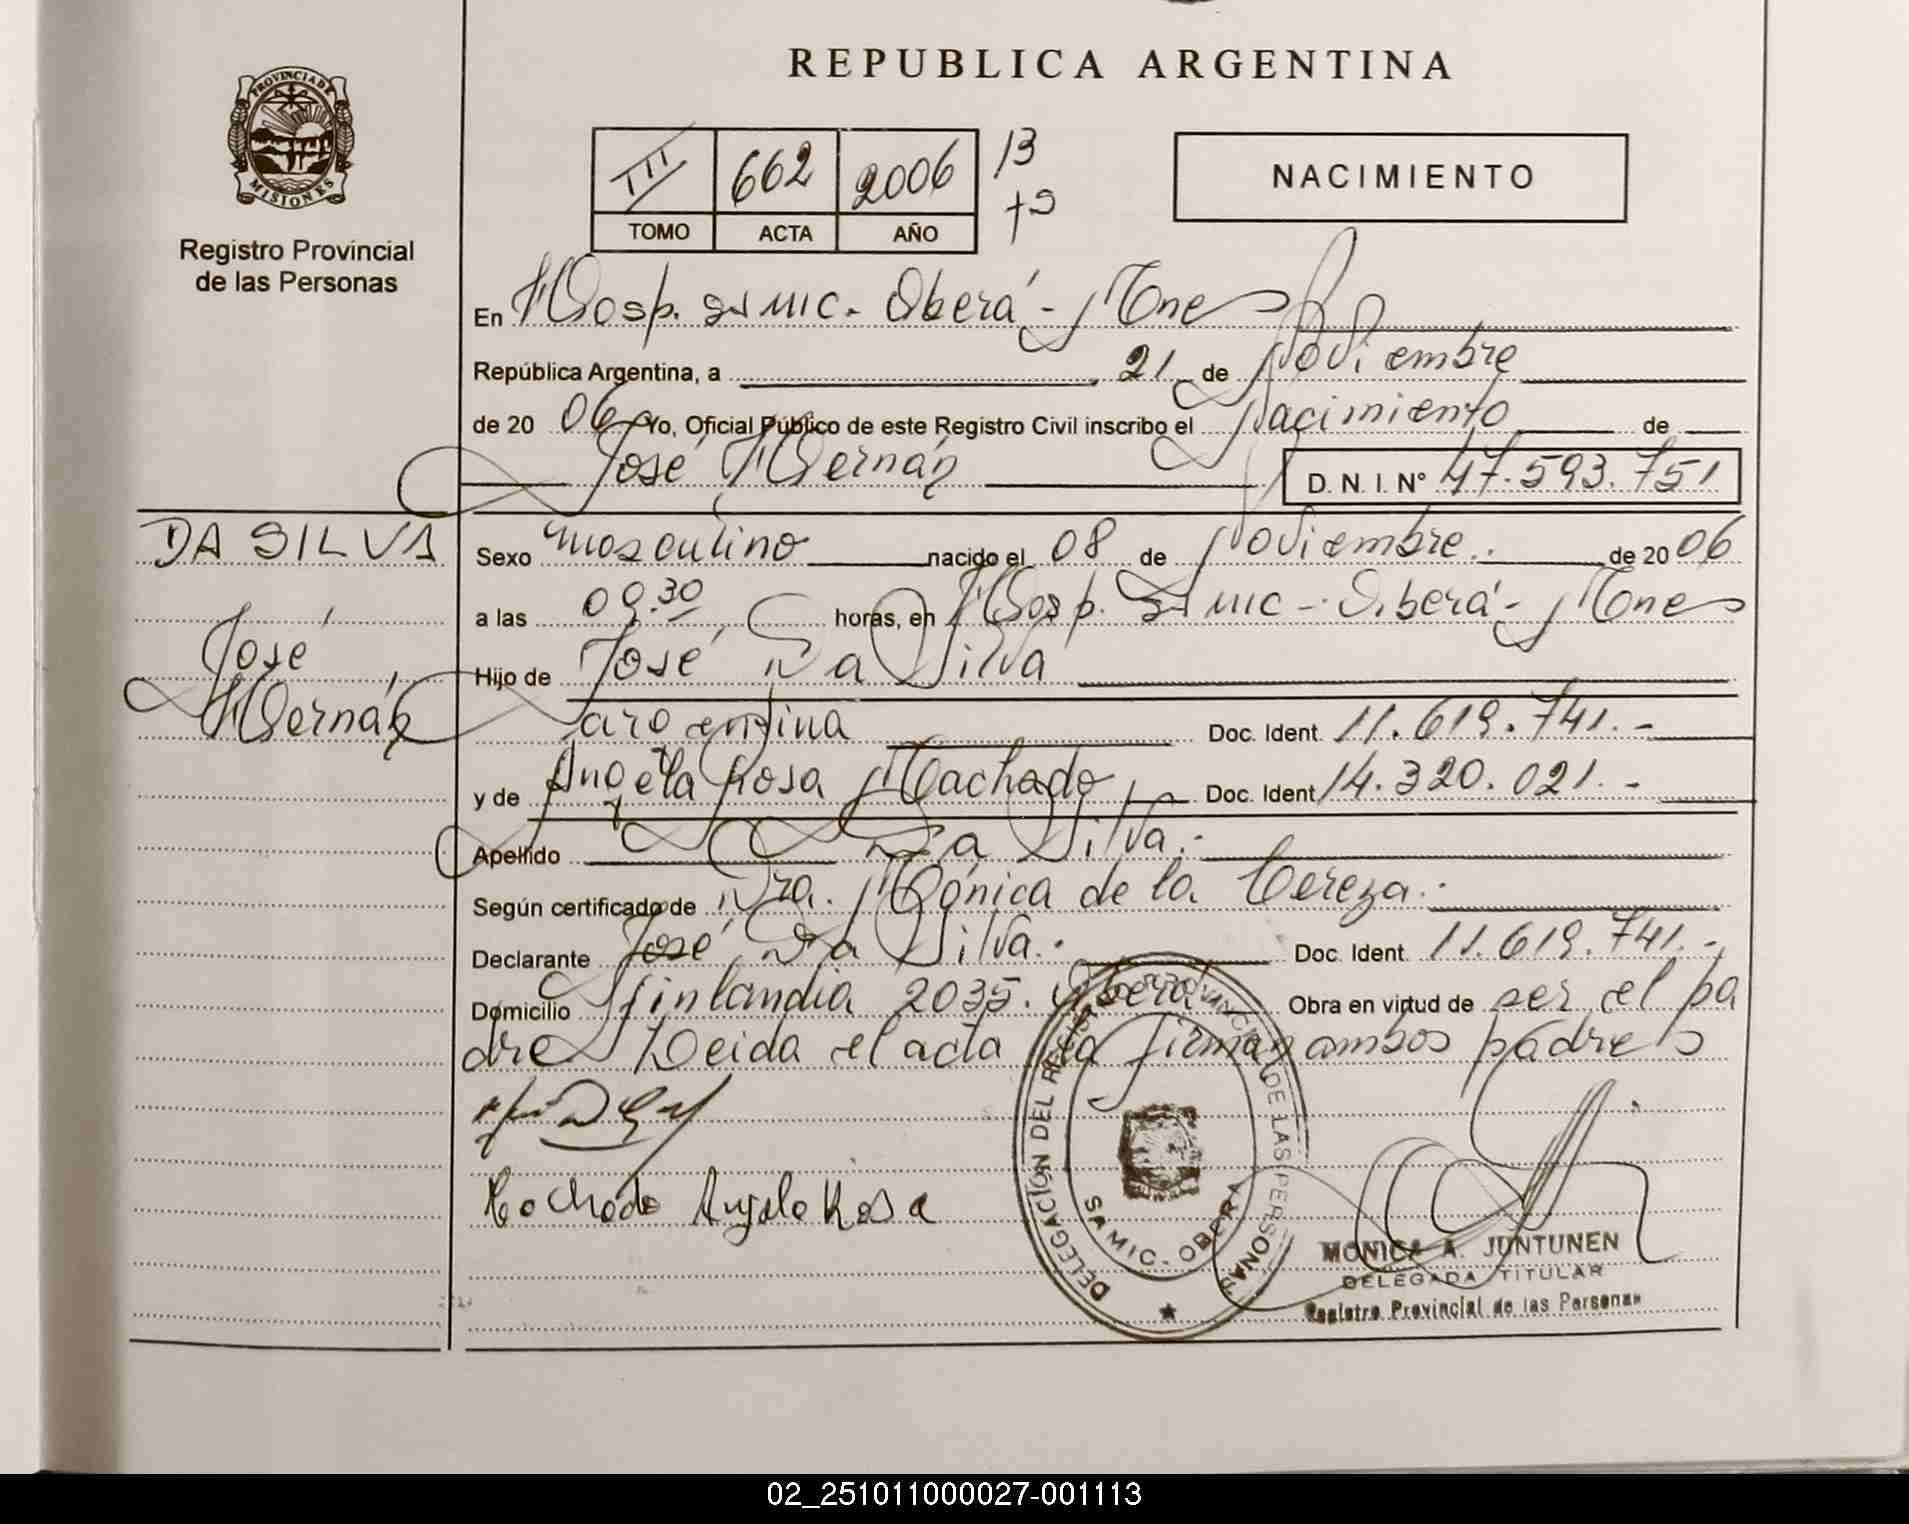 REPUBLICA ARGENTINA
PROVINCIA DE
MISIONES
Registro Provincial
de las Personas
III 662 2006 13
TOMO ACTA AÑO
NACIMIENTO
En Hosp. SAMIC. Oberá - Mnes
República Argentina, a 21 de Noviembre
de 20 06 Yo, Oficial Público de este Registro Civil inscribo el Nacimiento de
José Hernán D. N. I. N° 47.593.751
DA SILVA
José
Hernán
Sexo masculino nacido el 08 de Noviembre.. de 20 06
a las 09.30 horas, en Hosp. SAMIC - Oberá - Mnes
Hijo de José Da Silva
argentina Doc. Ident. 11.619.741.-
y de Angela Rosa Machado Doc. Ident 14.320.021.-
Apellido Da Silva.-
Según certificado de Dra. Mónica de la Cereza.-
Declarante José Da Silva.- Doc. Ident. 11.619.741.-
Domicilio Finlandia 2035. Oberá Obra en virtud de ser el pa
dre Leida el acta la firman ambos padres
Machado Angela Rosa
DELEGACIÓN DEL REGISTRO PROVINCIAL DE LAS PERSONAS
SAMIC. OBERA
MONICA A. JUNTUNEN
DELEGADA TITULAR
Registro Provincial de las Personas
02_251011000027-001113